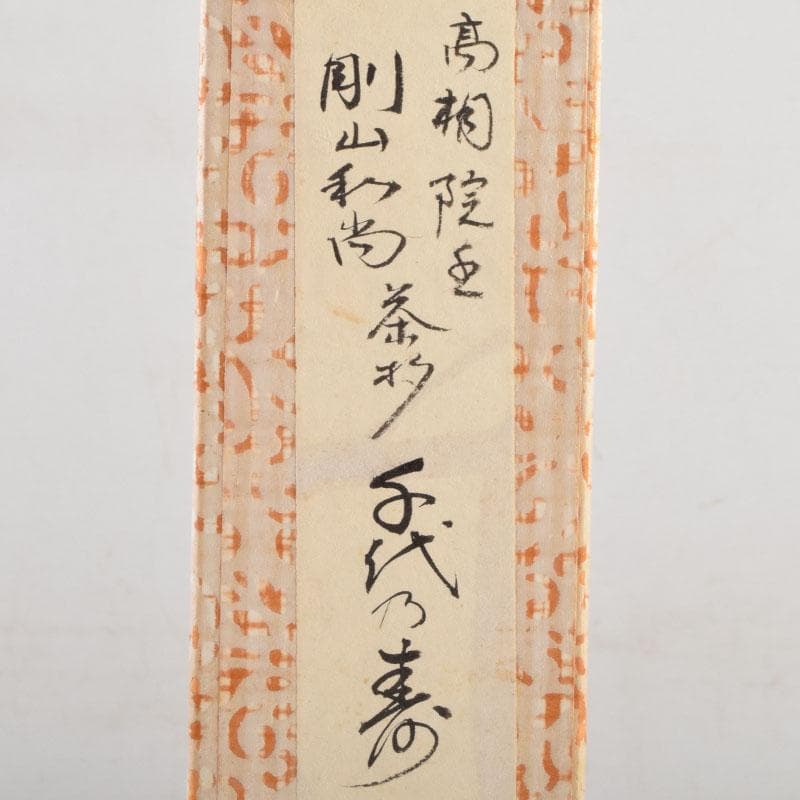 高桐院主
剛山和尚 茶杓
千代乃寿